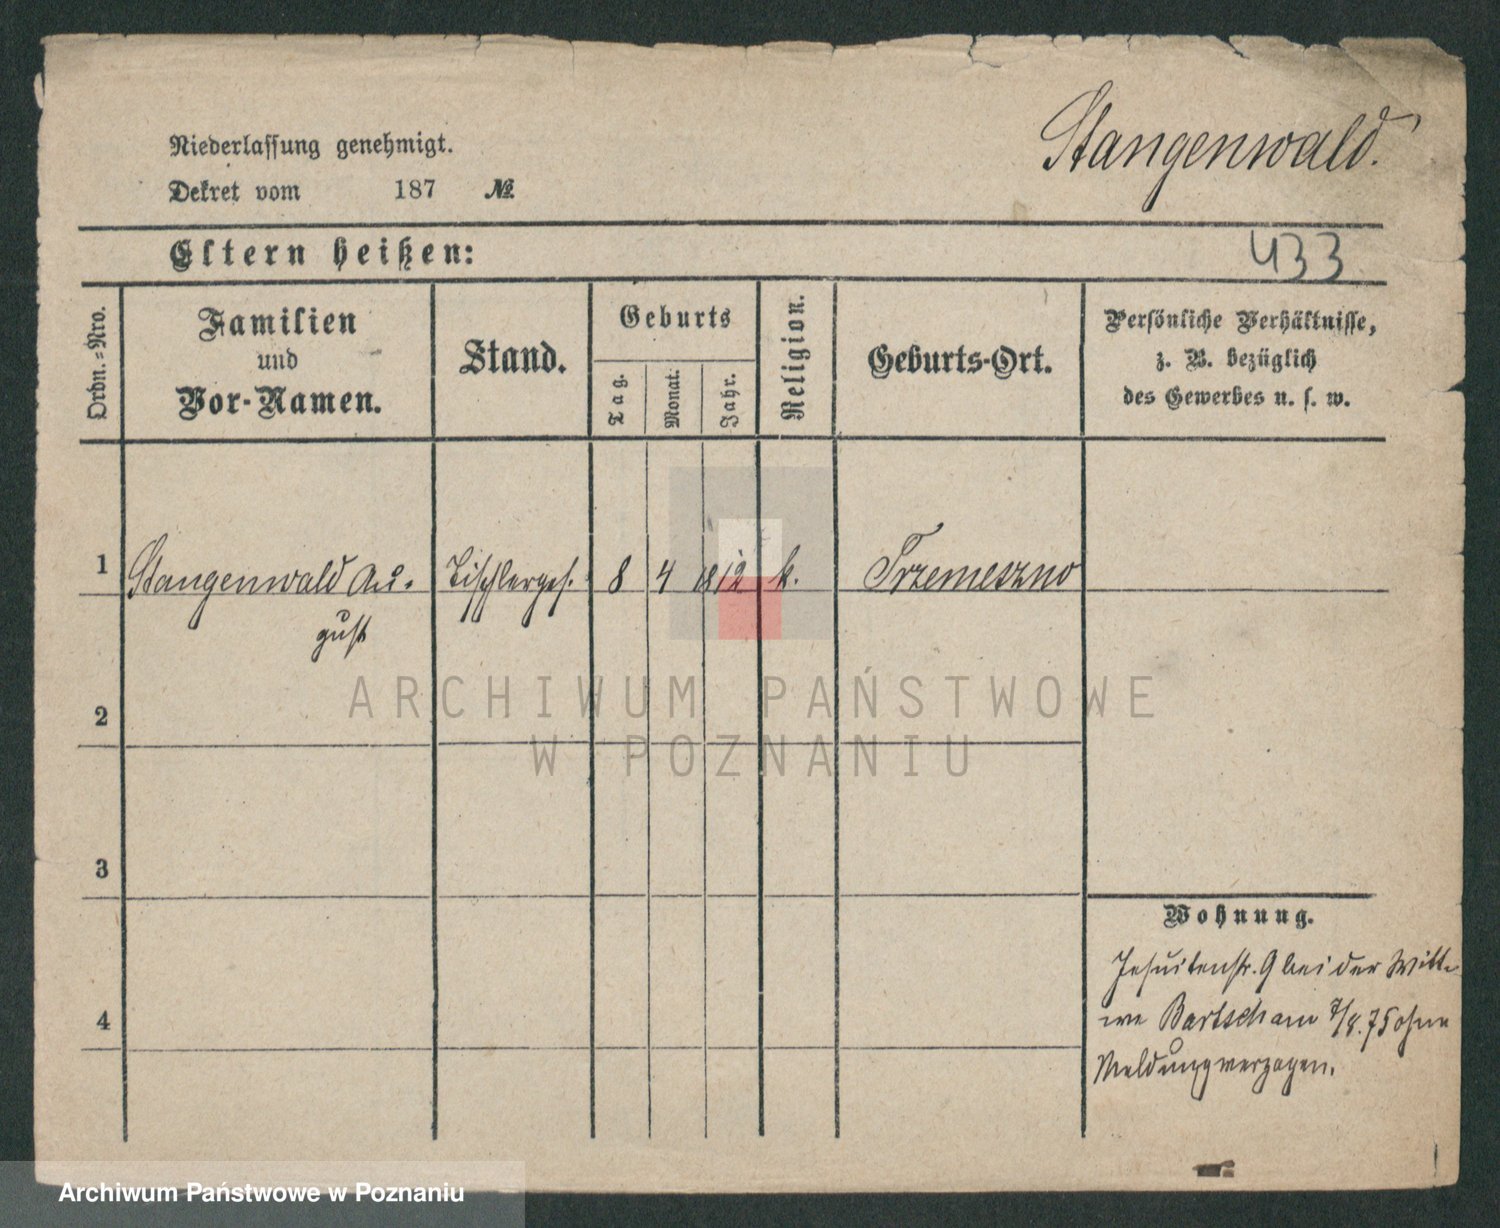 Niederlassung genehmigt.
Dekret vom 187 №
Stangenwald.
Eltern heißen:
433
Ordn.=Nro.
Familien
und
Vor-Namen.
Stand.
Geburts
Tag.
Monat.
Jahr.
Religion.
Geburts-Ort.
Persönliche Verhältnisse,
z. B. bezüglich
des Gewerbes u. s. w.
1 Stangenwald Au- Tischlerges. 8 4 1812 k. Trzemeszno
gust
2
3
4
Wohnung.
Jesuitenstr. 9 bei der Witt-
we Bartsch am 7/8. 75 ohne
Meldung verzogen.
ARCHIWUM PAŃSTWOWE
W POZNANIU
Archiwum Państwowe w Poznaniu